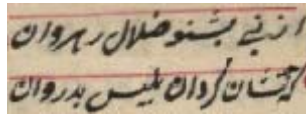 از نبی بشنو ضلال رهروان
که چشان کرد آن بلیس بدروان